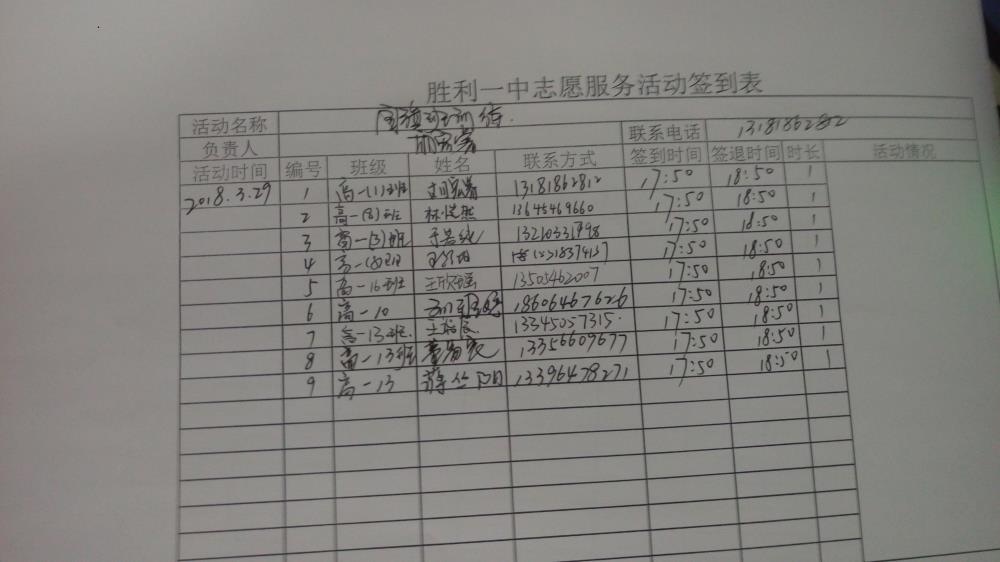 胜利一中志愿服务活动签到表
活动名称 国旗班训练.
负责人 联系电话 13181862812
活动时间 编号 班级 姓名 联系方式 签到时间 签退时间 时长 活动情况
2018.3.29 1 高一(1)班 13181862812 17:50 18:50 1
2 高一(3)班 林悦然 13645469660 17:50 18:50 1
3 高一(3)班 于若纯 13210331998 17:50 18:50 1
4 高一(8)班 17:50 18:50 1
5 高一16班 王欣瑶 13505462007 17:50 18:50 1
6 高一10 18606467626 17:50 18:50 1
7 高一13班. 13345057315. 17:50 18:50 1
8 高一13班 13356609677 17:50 18:50 1
9 高一13 薛竺阳 13396478271 17:50 18:50 1